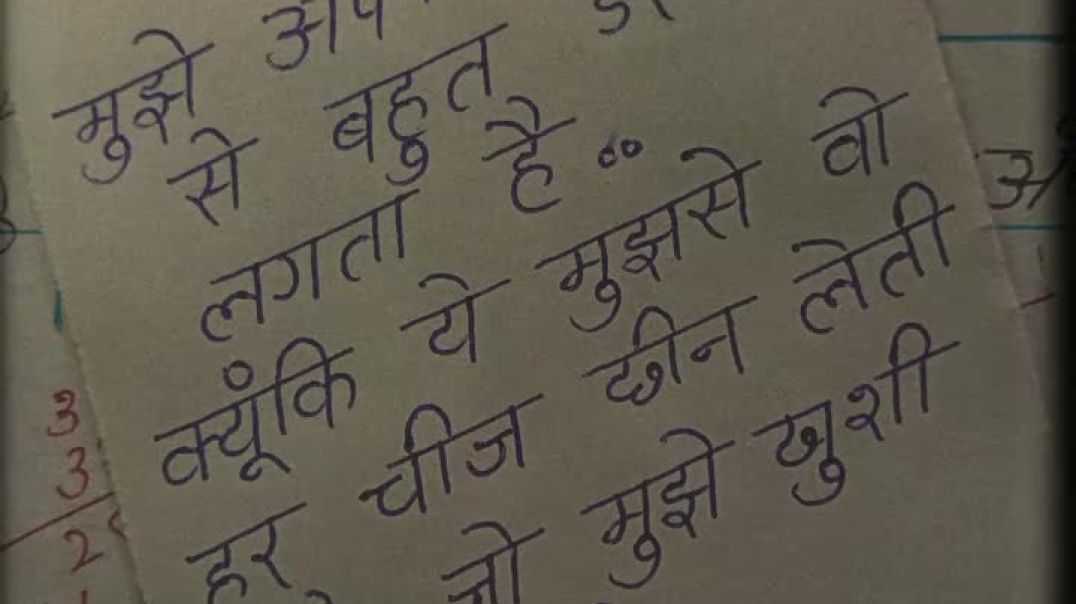 मुझे
से बहुत
लगता है
क्यूंकि ये मुझसे वो
हर चीज छीन लेती
जो मुझे खुशी
3
3
2